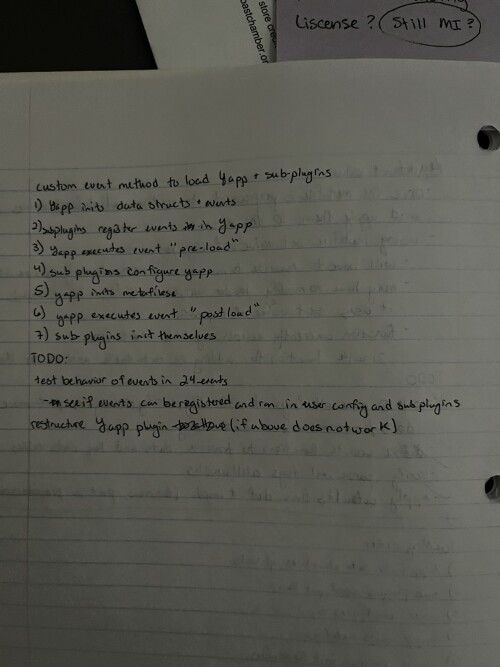 store cred
pastchamber.or
Liscense? Still MI?
custom event method to load Yapp + sub-plugins
1) Yapp inits data structs + events
2) subplugins register events in Yapp
3) Yapp executes event "pre-load"
4) sub plugins configure yapp
5) yapp inits metafiles
6) yapp executes event "post load"
7) sub plugins init themselves
TODO:
test behavior of events in 24-events
- see if events can be registered and ran in user config and sub plugins
restructure Yapp plugin (if above does not work)